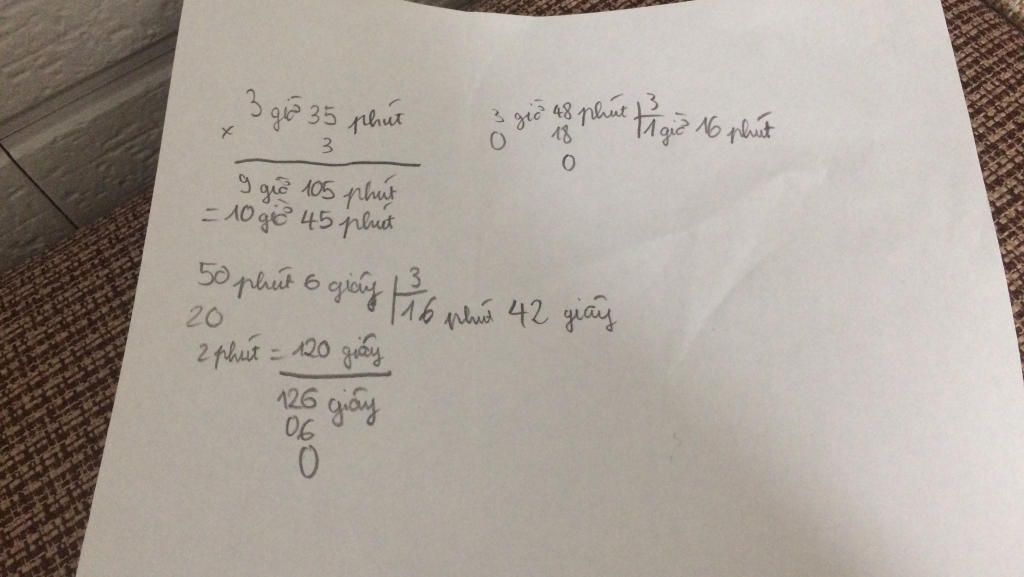 3 giờ 35 phút
× 3
9 giờ 105 phút
= 10 giờ 45 phút
3 giờ 48 phút | 3
0 18 1 giờ 16 phút
0
50 phút 6 giây | 3
20 16 phút 42 giây
2 phút = 120 giây
126 giây
06
0